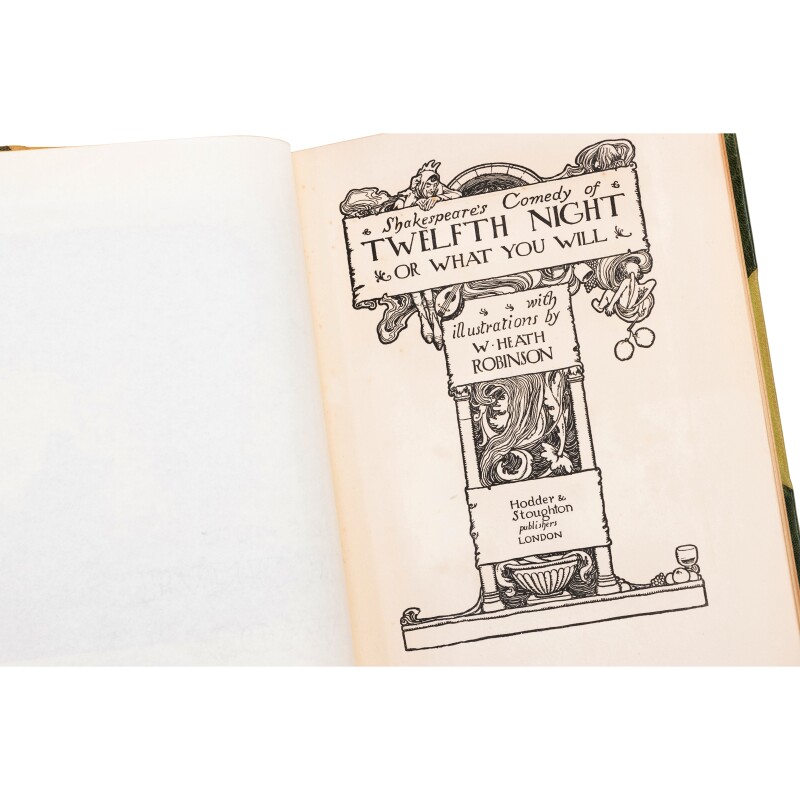 Shakespeare's Comedy of
TWELFTH NIGHT
OR WHAT YOU WILL
with
illustrations by
W·HEATH
ROBINSON
Hodder &
Stoughton
publishers
LONDON